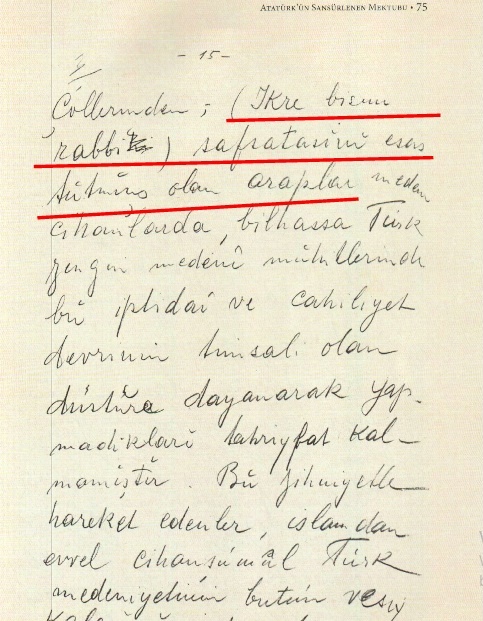 ATATÜRK'ÜN SANSÜRLENEN MEKTUBU • 75
- 15 -
Çöllerinden ; (Ikre bismi
rabbike) safsatasını esas
tutmuş olan araplar meden
cihanlarda, bilhassa Türk
zengin medenî muhitlerinde
bu iptidaî ve cahiliyet
devrinin timsali olan
düstûra dayanarak yap-
madikları tahriyfat kal-
mamıştır. Bu zihniyetle
hareket edenler, islamdan
evvel cihanşümûl Türk
medeniyetinin bütün vesiy